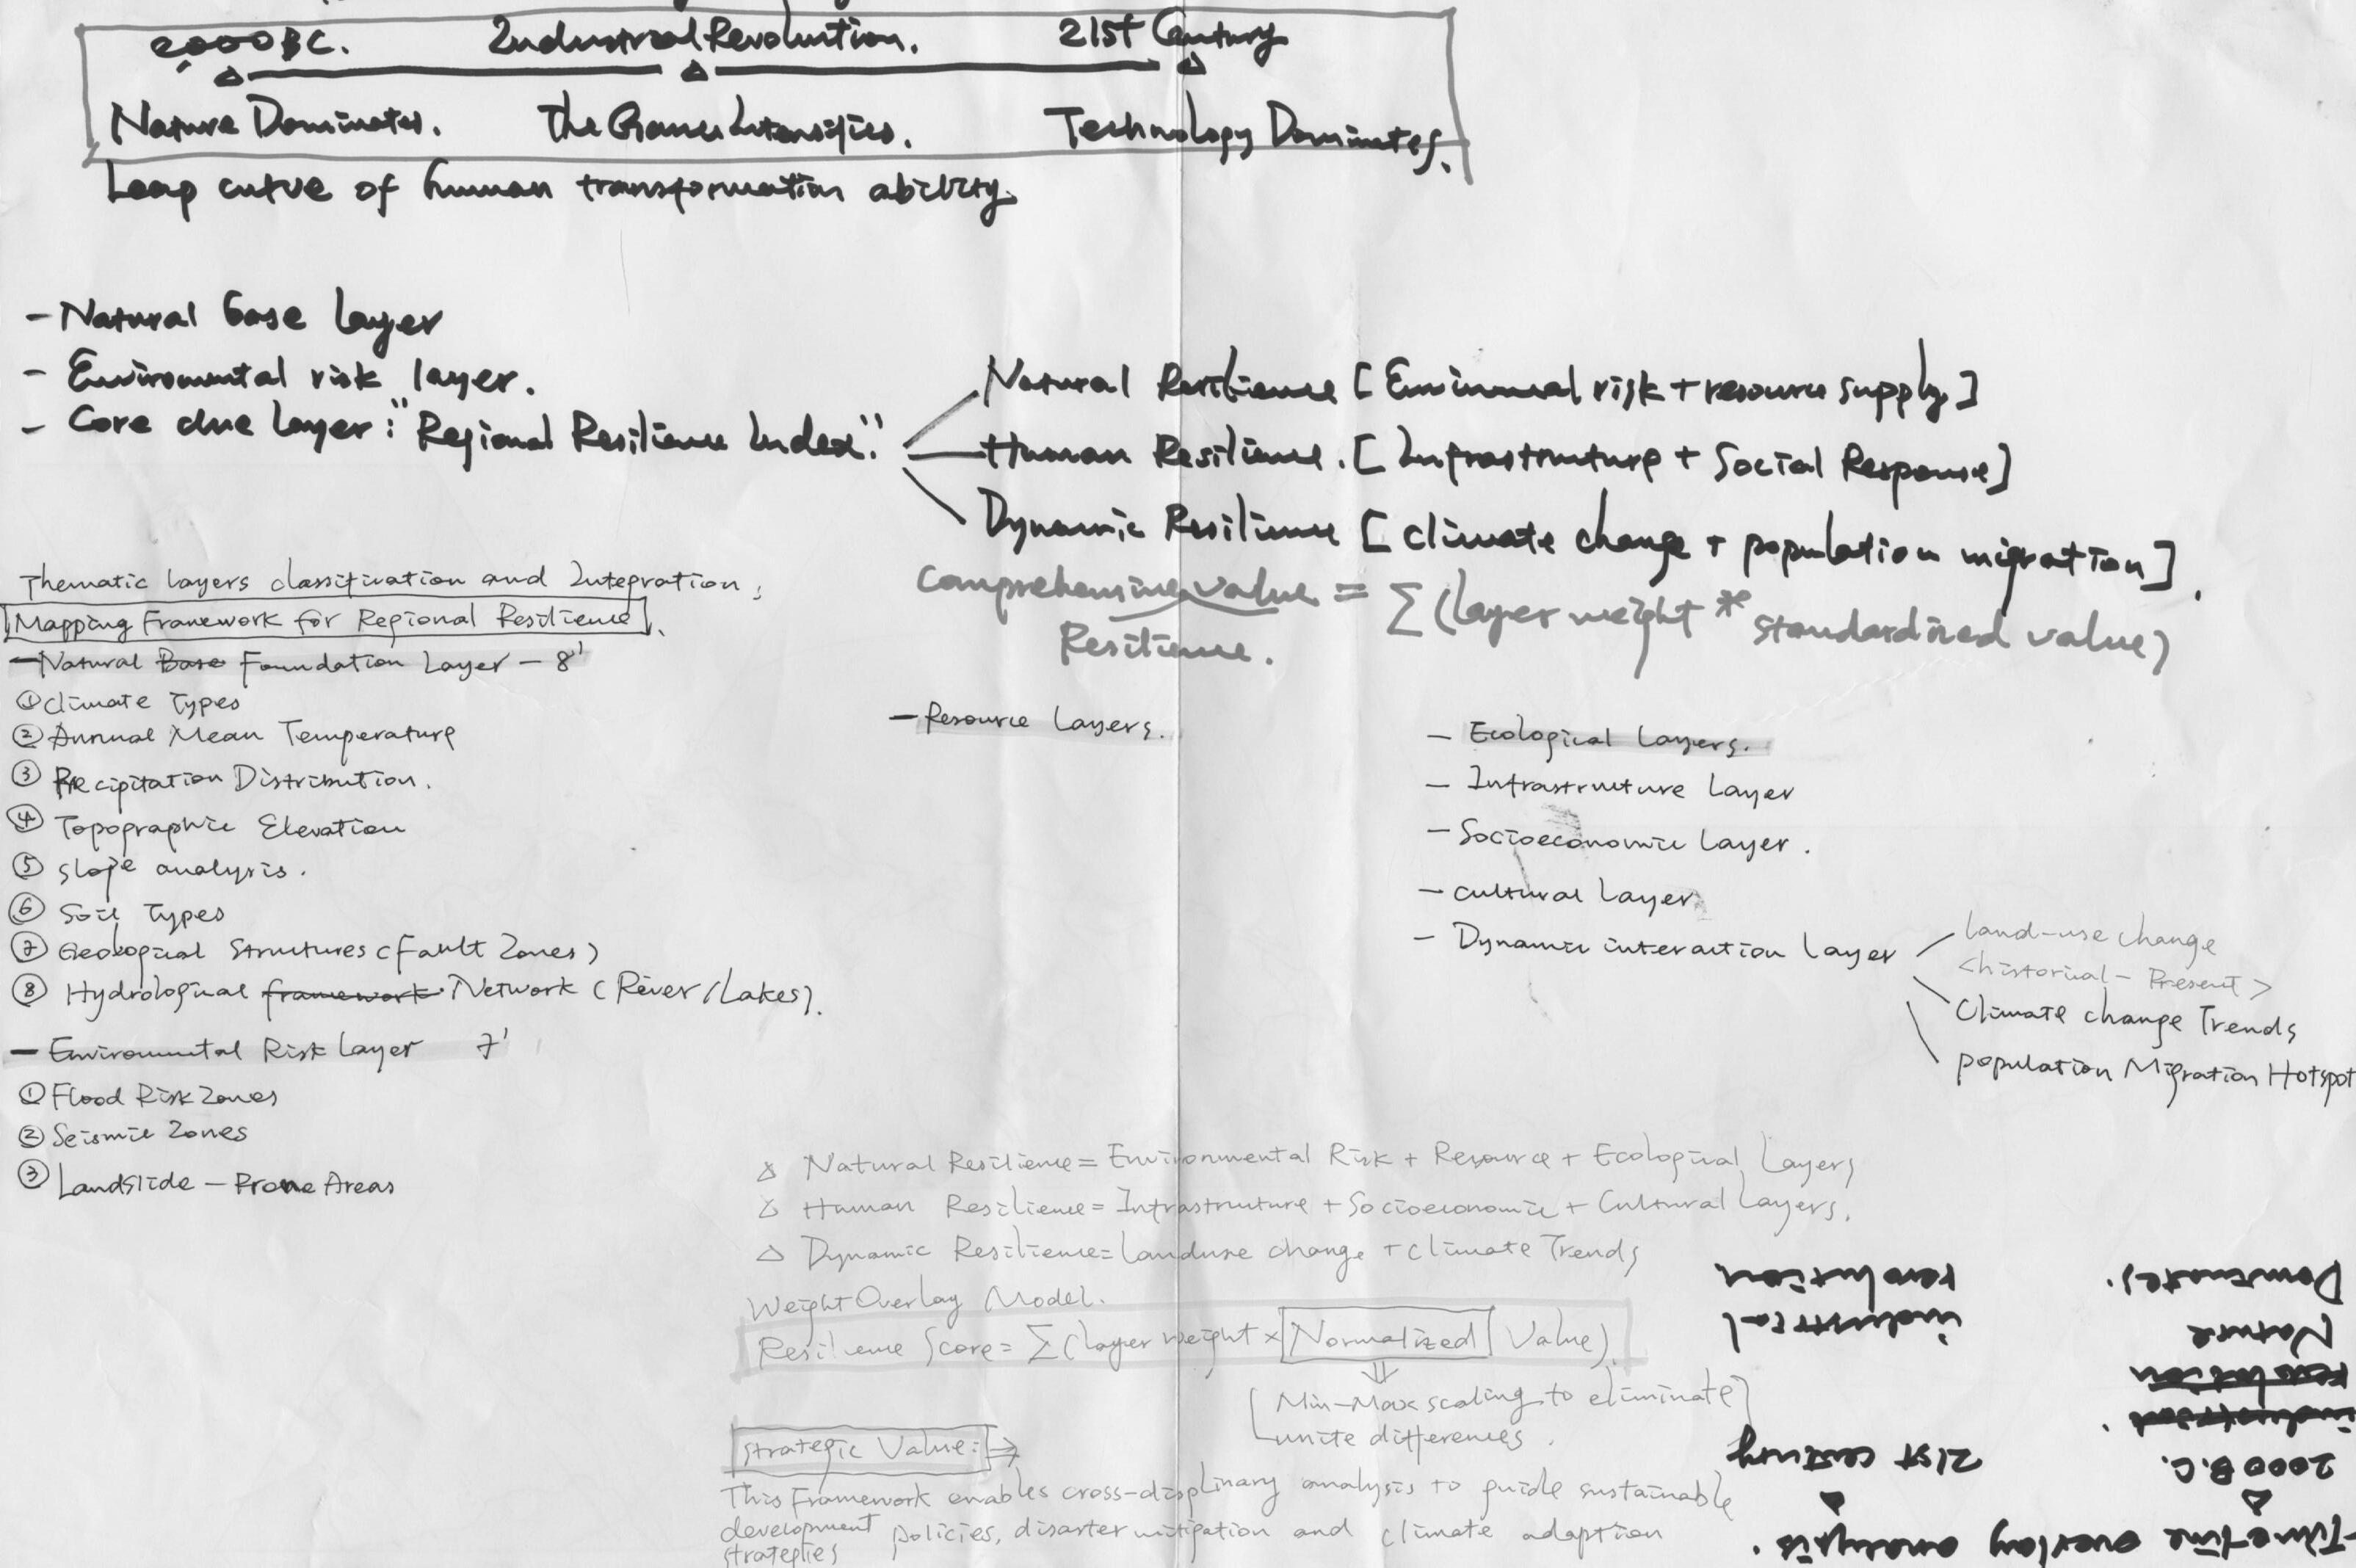 2000BC. Industrial Revolution. 21st Century
Nature Dominates. The Games Intensifies. Technology Dominates.
Leap curve of human transformation ability.
- Natural base layer
- Enviromental risk layer.
- Core clue layer: "Regional Resilience Index".
Natural Resilience [Enviromental risk + resource supply]
Human Resilience. [Infrastructure + Social Response]
Dynamic Resilience [climate change + population migration].
comprehensive value = Σ (layer weight * standardized value)
Resilience.
Thematic layers classification and Integration;
Mapping Framework for Regional Resilience.
- Natural Base Foundation Layer - 8'
① Climate Types
② Annual Mean Temperature
③ Precipitation Distribution.
④ Topographic Elevation
⑤ Slope analysis.
⑥ Soil Types
⑦ Geological Structures (Fault Zones)
⑧ Hydrological framework Network (River/Lakes).
- Environmental Risk Layer 7'
① Flood Risk Zones
② Seismic Zones
③ Landslide - Prone Areas
- Resource Layers.
- Ecological Layers.
- Infrastructure Layer
- Socioeconomic Layer.
- cultural layer
- Dynamic interaction layer
land-use change
<historical - Present>
Climate change Trends
population Migration Hotspot
△ Natural Resilience = Environmental Risk + Resource + Ecological Layers
△ Human Resilience = Infrastructure + Socioeconomic + Cultural Layers.
△ Dynamic Resilience = Landuse change + Climate Trends
Weight Overlay Model.
Resilience Score = Σ (layer weight × Normalized Value)
[Min-Max scaling to eliminate
unite differences.]
Strategic Value: ⇒
This Framework enables cross-displinary analysis to guide sustainable
development policies, disaster mitigation and climate adaption
strategies
-Timeline overlay analysis.
2000 B.C. 21st century
industrial
revolution
Nature industrial
Dominates. revolution